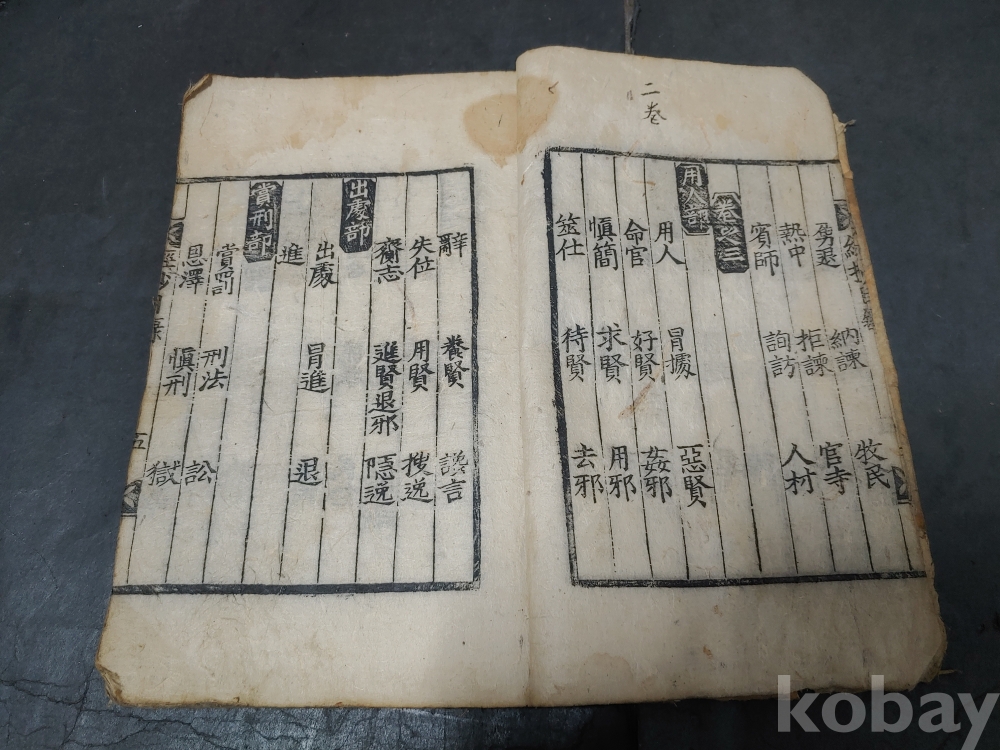 二卷
勇退 納諫 牧民
熱中 拒諫 官寺
賓師 詢訪 人材
卷之三
用人部
用人 冒據 惡賢
命官 好賢 姦邪
愼簡 求賢 用邪
筮仕 待賢 去邪
辭 養賢 讒言
失位 用賢 搜逸
齎志 進賢退邪 隱逸
出處部
出處 冒進 退
進
賞刑部
賞罰 刑法 訟
恩澤 愼刑 獄
五
kobay